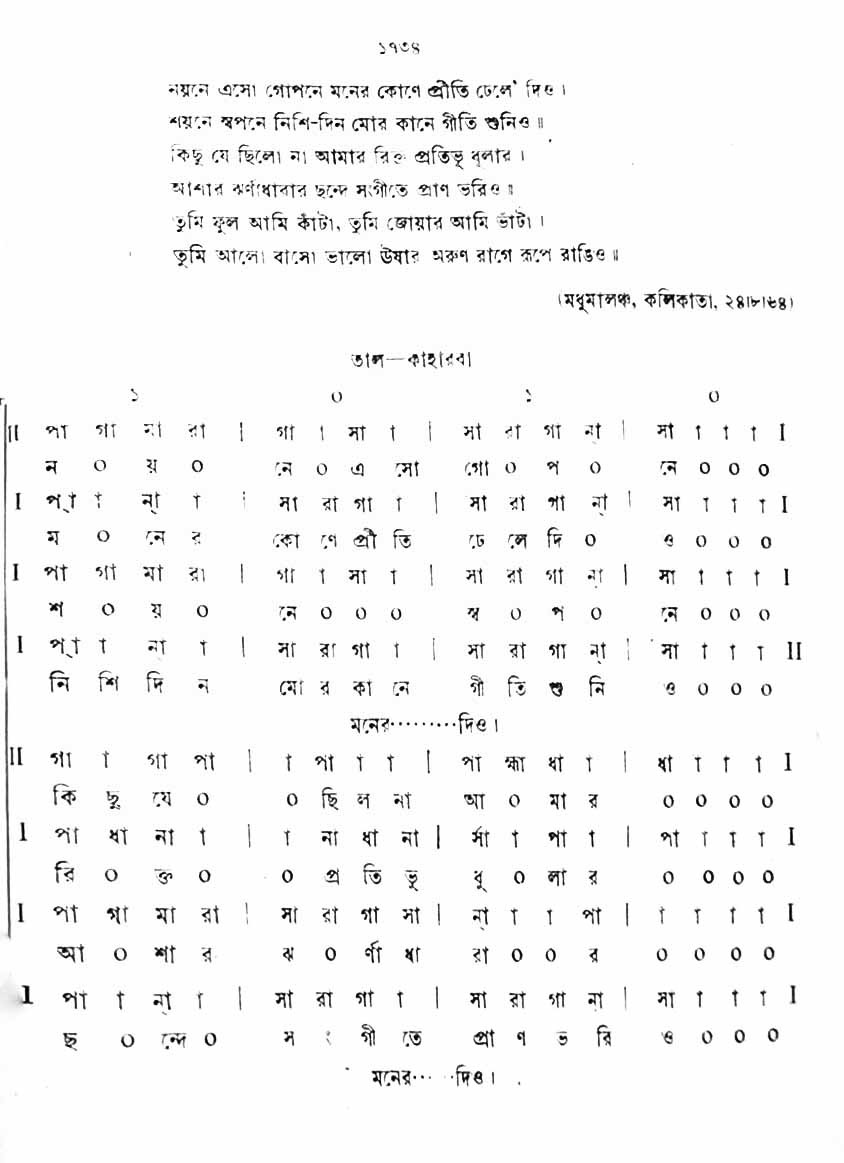 ১৭৩৪
নয়নে এসো গোপনে মনের কোণে প্রীতি ঢেলে দিও।
শয়নে স্বপনে নিশি-দিন মোর কানে গীতি শুনিও॥
কিছু যে ছিলো না আমার রিক্ত প্রতিভূ ধূলার।
আশার ঝর্ণাধারার ছন্দে সংগীতে প্রাণ ভরিও॥
তুমি ফুল আমি কাঁটা, তুমি জোয়ার আমি ভাঁটা।
তুমি আলো বাসো ভালো ঊষার অরুণ রাগে রূপে রাঙিও॥
(মধুমালঞ্চ, কলিকাতা, ২৪।৮।৬৪)
তাল—কাহারবা
১ ০ ১ ০
II পা গা মা রা | গা া সা া | সা রা গা ন্া | সা া া া I
ন ০ য় ০ নে ০ এ সো গো ০ প ০ নে ০ ০ ০
I প্া া ন্া া | সা রা গা া | সা রা গা ন্া | সা া া া I
ম ০ নে র কো ণে প্রী তি ঢে লে দি ০ ও ০ ০ ০
I পা গা মা রা | গা া সা া | সা রা গা ন্া | সা া া া I
শ ০ য় ০ নে ০ ০ ০ স্ব ০ প ০ নে ০ ০ ০
I প্া া ন্া া | সা রা গা া | সা রা গা ন্া | সা া া া II
নি শি দি ন মো র কা নে গী তি শু নি ও ০ ০ ০
মনের·········দিও।
II গা া গা পা | া পা া া | পা হ্মা ধা া | ধা া া া I
কি ছু যে ০ ০ ছি ল না আ ০ মা র ০ ০ ০ ০
I পা ধা না া | া না ধা না | র্সা া পা া | পা া া া I
রি ০ ক্ত ০ ০ প্র তি ভূ ধূ ০ লা র ০ ০ ০ ০
I পা গা মা রা | সা রা গা সা | ন্া া া পা | া া া া I
আ ০ শা র ঝ ০ র্ণা ধা রা ০ ০ র ০ ০ ০ ০
I পা া ন্া া | সা রা গা া | সা রা গা ন্া | সা া া া I
ছ ০ ন্দে ০ স ং গী তে প্রা ণ ভ রি ও ০ ০ ০
মনের··· ··দিও।